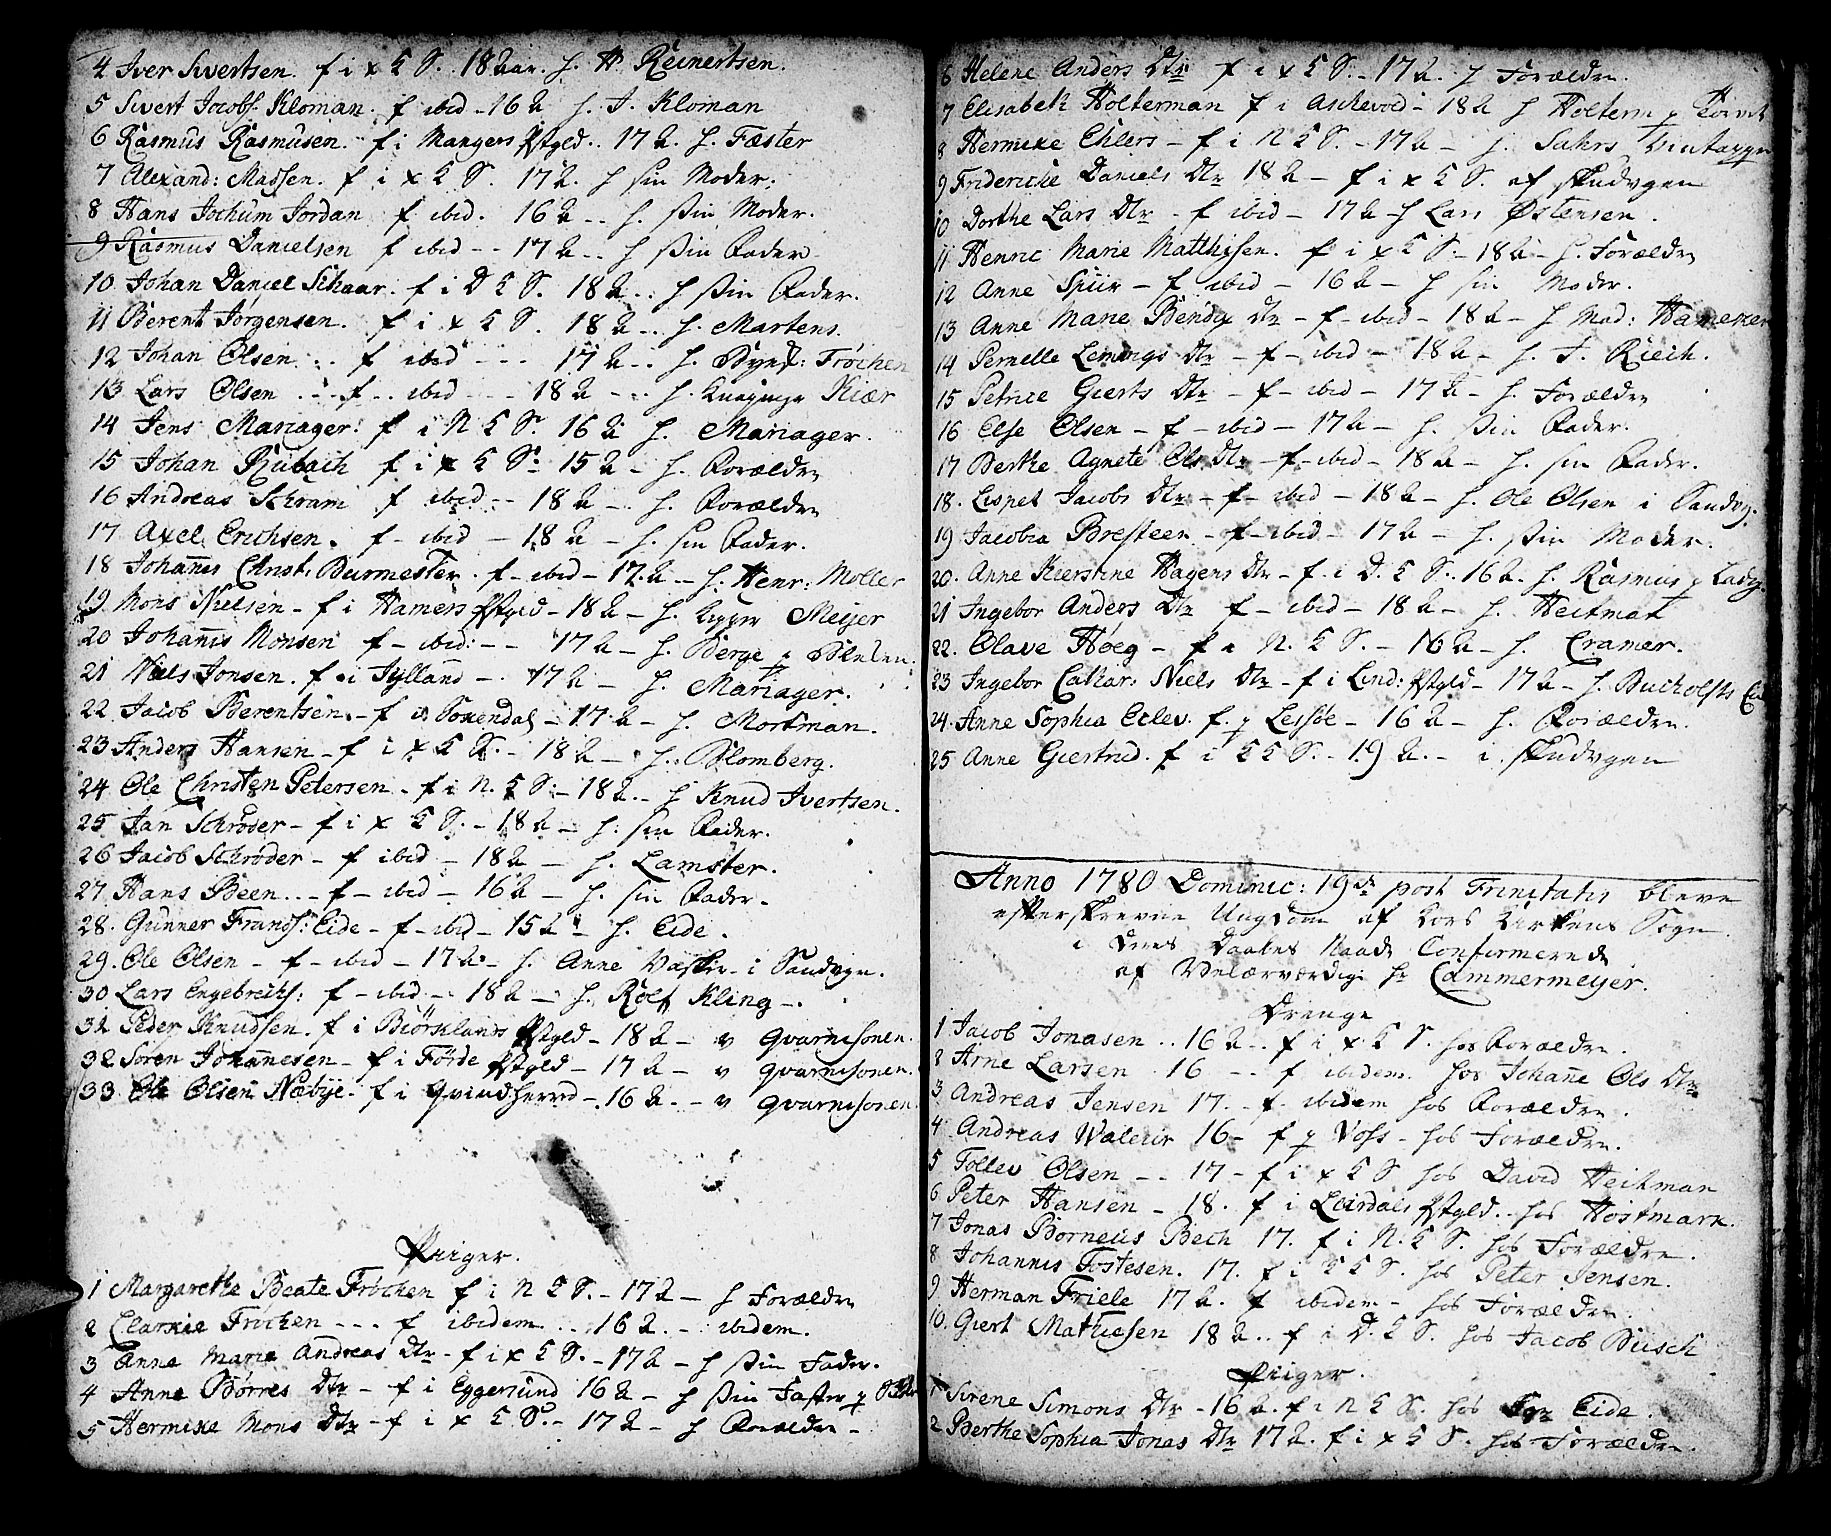 4 Iver Sivertsen. f i x K S. 18 aar. h. H. Reinertsen.
5 Sivert Jacobs. Kloman. f ibid - 16 a h. J. Kloman
6 Rasmus Rasmusen. f i Mangers Pstgld.. 17 a. h. Fæster
7 Alexand: Massen. f i x K S. 17 a. h sin Moder.
8 Hans Jochum Jordan f ibid. 16 a .. h. sin Moder.
9 Rasmus Danielsen f ibid -- 17 a .. h sin Fader.
10 Johan Daniel Schaar. f i D K S. 18 a .. h sin Fader.
11 Berent Jørgensen. f i x K S. 18 a .. h. Martens.
12 Johan Olsen .. f ibid --- 17 a .. h. Frøchen
13 Lars Olsen ... f .. ibid --- 18 a ... h. Kiær
14 Jens Mariager. f i N K S 16 a h. Mariager.
15 Johan Rübach f i x K S. 15 a - h. Forældre
16 Andreas Schram f ibid -- 18 a - h. Forældre
17 Axel Erichsen. f - ibid - 18 a - h. sin Fader.
18 Johañes Christ: Burmester. f - ibid - 17 a - h. Henr: Møller
19 Mons Nielsen - f i Hamers Pstgld - 18 a - h. Meyer
20 Johañis Monsen f - ibid: -- 17 a - h. Berge p
21 Niels Jonsen. f. i Jylland -. 17 a - h. Mariager.
22 Jacob Berentsen. - f i - 17 a - h. Mortman.
23 Anders Hansen - f i x K S. - 18 a - h. Blomberg.
24 Ole Christen Petersen - f i N. K S. - 18 a. - h Knud Ivertsen.
25 Jan Schrøder - f i x K S. - 18 a - h. sin Fader.
26 Jacob Schrøder - f ibid - 18 a - h. Lamster.
27 Hans Been... f - ibid - 16 a - h. sin Fader.
28. Gunner Frands: Eide - f - ibid - 15 a - h. Eide.
29. Ole Olsen - f - ibid - 17 a. - h. Anne i Sandvgn.
30 Lars Engebretts: f - ibid - 18 a - h. Rolf Kling -.
31 Peder Knudsen. f i Biörklands Pstgld - 18 a - v Qvarnisonen.
32 Søren Johañesen - f i Førde Pstgld - 17 a - v Qvarnisonen.
33 Ole Olsen Næbÿe - f i Qvindherred - 16 a. - v Qvarnisonen.
Piiger.
1 Margarethe Beate Frøchen f i N K S. - 17 a - h Forældre
2 Frøchen --- f ibidem .. 16 a - ibidem.
3 Anne Marie Andreas Dtr - f i x K S. - 17 a - h sin Fader.
4 Anne Børres Dtr - f i Eggersund 16 a - h sin Faster p
5 Hermixe Mons Dtr - f i x K S. - 17 a - h Forældre -
6 Helene Anders Dtr f i x K S. - 17 a. h Forældre.
7 Elisabeth Holterman f i Aschevold - 18 a h Holterm p
8 Hermixe Ehlers - f i N K S. - 17 a - h. Sahrs
9 Friderike Daniels Dtr 18 a - f i x K S. af Skudvgen
10 Dorthe Lars Dtr - f ibid - 17 a - h Lars Østensen.
11 Henric Marie Matthisen. f i x K S. - 18 a - h. Forældre
12 Anne Spiir - f ibid - 16 a - h sin Moder.
13 Anne Marie Bendix Dtr - f - ibid - 18 a - h Mad:
14 Pernelle Lemings Dtr - f - ibid - 18 a - h. J. Riech.
15 Petrice Gierts Dtr - f - ibid - 17 a - h. Forældre
16 Else Olsen - f - ibid - 17 a - h. sin Fader.
17 Berthe Agnete Ols Dtr - f - ibid - 18 a - h. sin Fader.
18. Lispet Jacobs Dtr - f - ibid - 18 a - h. Ole Olsen i Sandvg.
19 Jacobia Bresteen - f - ibid - 17 a - h. sin Moder.
20. Anne Kierstine Hagens Dtr - f. i D. K S. - 16 a. h. Rasmus p
21 Ingebor Anders Dtr f - ibid - 18 a - h. Heitmat
22. Olave Høeg - f i N. K S. - 16 a - h. Cramer.
23 Ingebor Cathar: Niels Dtr - f i Lind: Pstgld - 17 a - h. Bucholfts
24. Anne Sophia f. p Lessøe - 16 a - h. Forældre.
25 Anne Giertrud. f i K K S. - 19 a. - i skudvgen
Anno 1780 Dominic: 19de post Trinitatis bleve
efterskrevne Ungdom af Kors Kirkens Sogn
i Deres Daabes Naade Confirmerede
af Velærværdige hr Cammermeyer.
Drenge
1 Jacob Jonasen .. 16 a .. f i x K S. hos Forældre.
2 Arne Larsen 16 -- f ibidem. hos Johañe Ols Dtr
3 Andreas Jensen 17. - f. ibidem hos Forældre.
4 Andreas Waleur 16 - f p Voss - hos Forældre.
5 Tollev Olsen -- 17 - f i x K S. hos David Heitman
6 Peter Hansen - 18. f i Leirdals Pstgld. - hos Høstmark.
7 Jonas Borneus Bech 17. f i N. K S. hos Forældre.
8 Johannis Tostesen. 17. f i K K S. hos Peter Jensen.
9 Herman Friele 17 a. f ibidem - hos Forældre.
10. Giert Mathiesen 18 a .. f i D. K S. hos Jacob Busch
Piiger.
1 Sirene Simons Dtr - 16 a. f i N K S. hos Eide.
2 Berthe Sophia Jonas Dtr 17 a. f i x K S. hos Forældre.